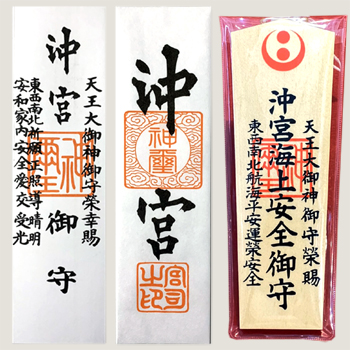 天王大御神御守榮幸賜
沖宮御守
東西南北祈願正照導晴明
安和家内安全愛交受光
沖宮
宮司之印
天王大御神御守榮賜
沖宮海上安全御守
東西南北航海平安運榮安全